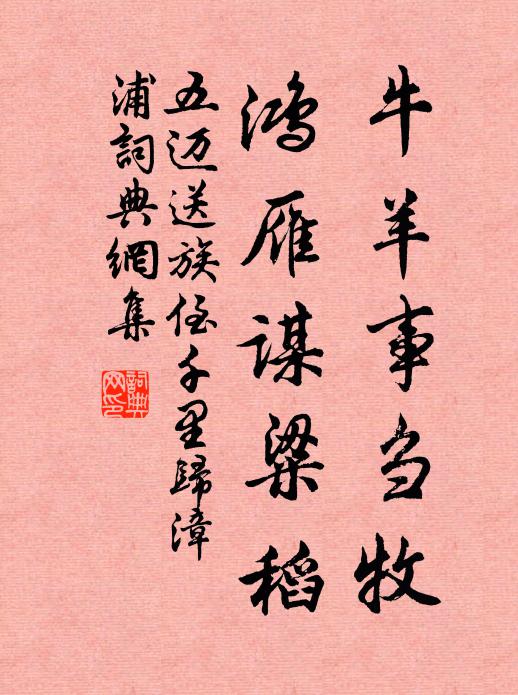 牛羊事刍牧
鸿雁谋梁稻
五迈送族侄千里歸漳
浦詞典網集
詞典
网印